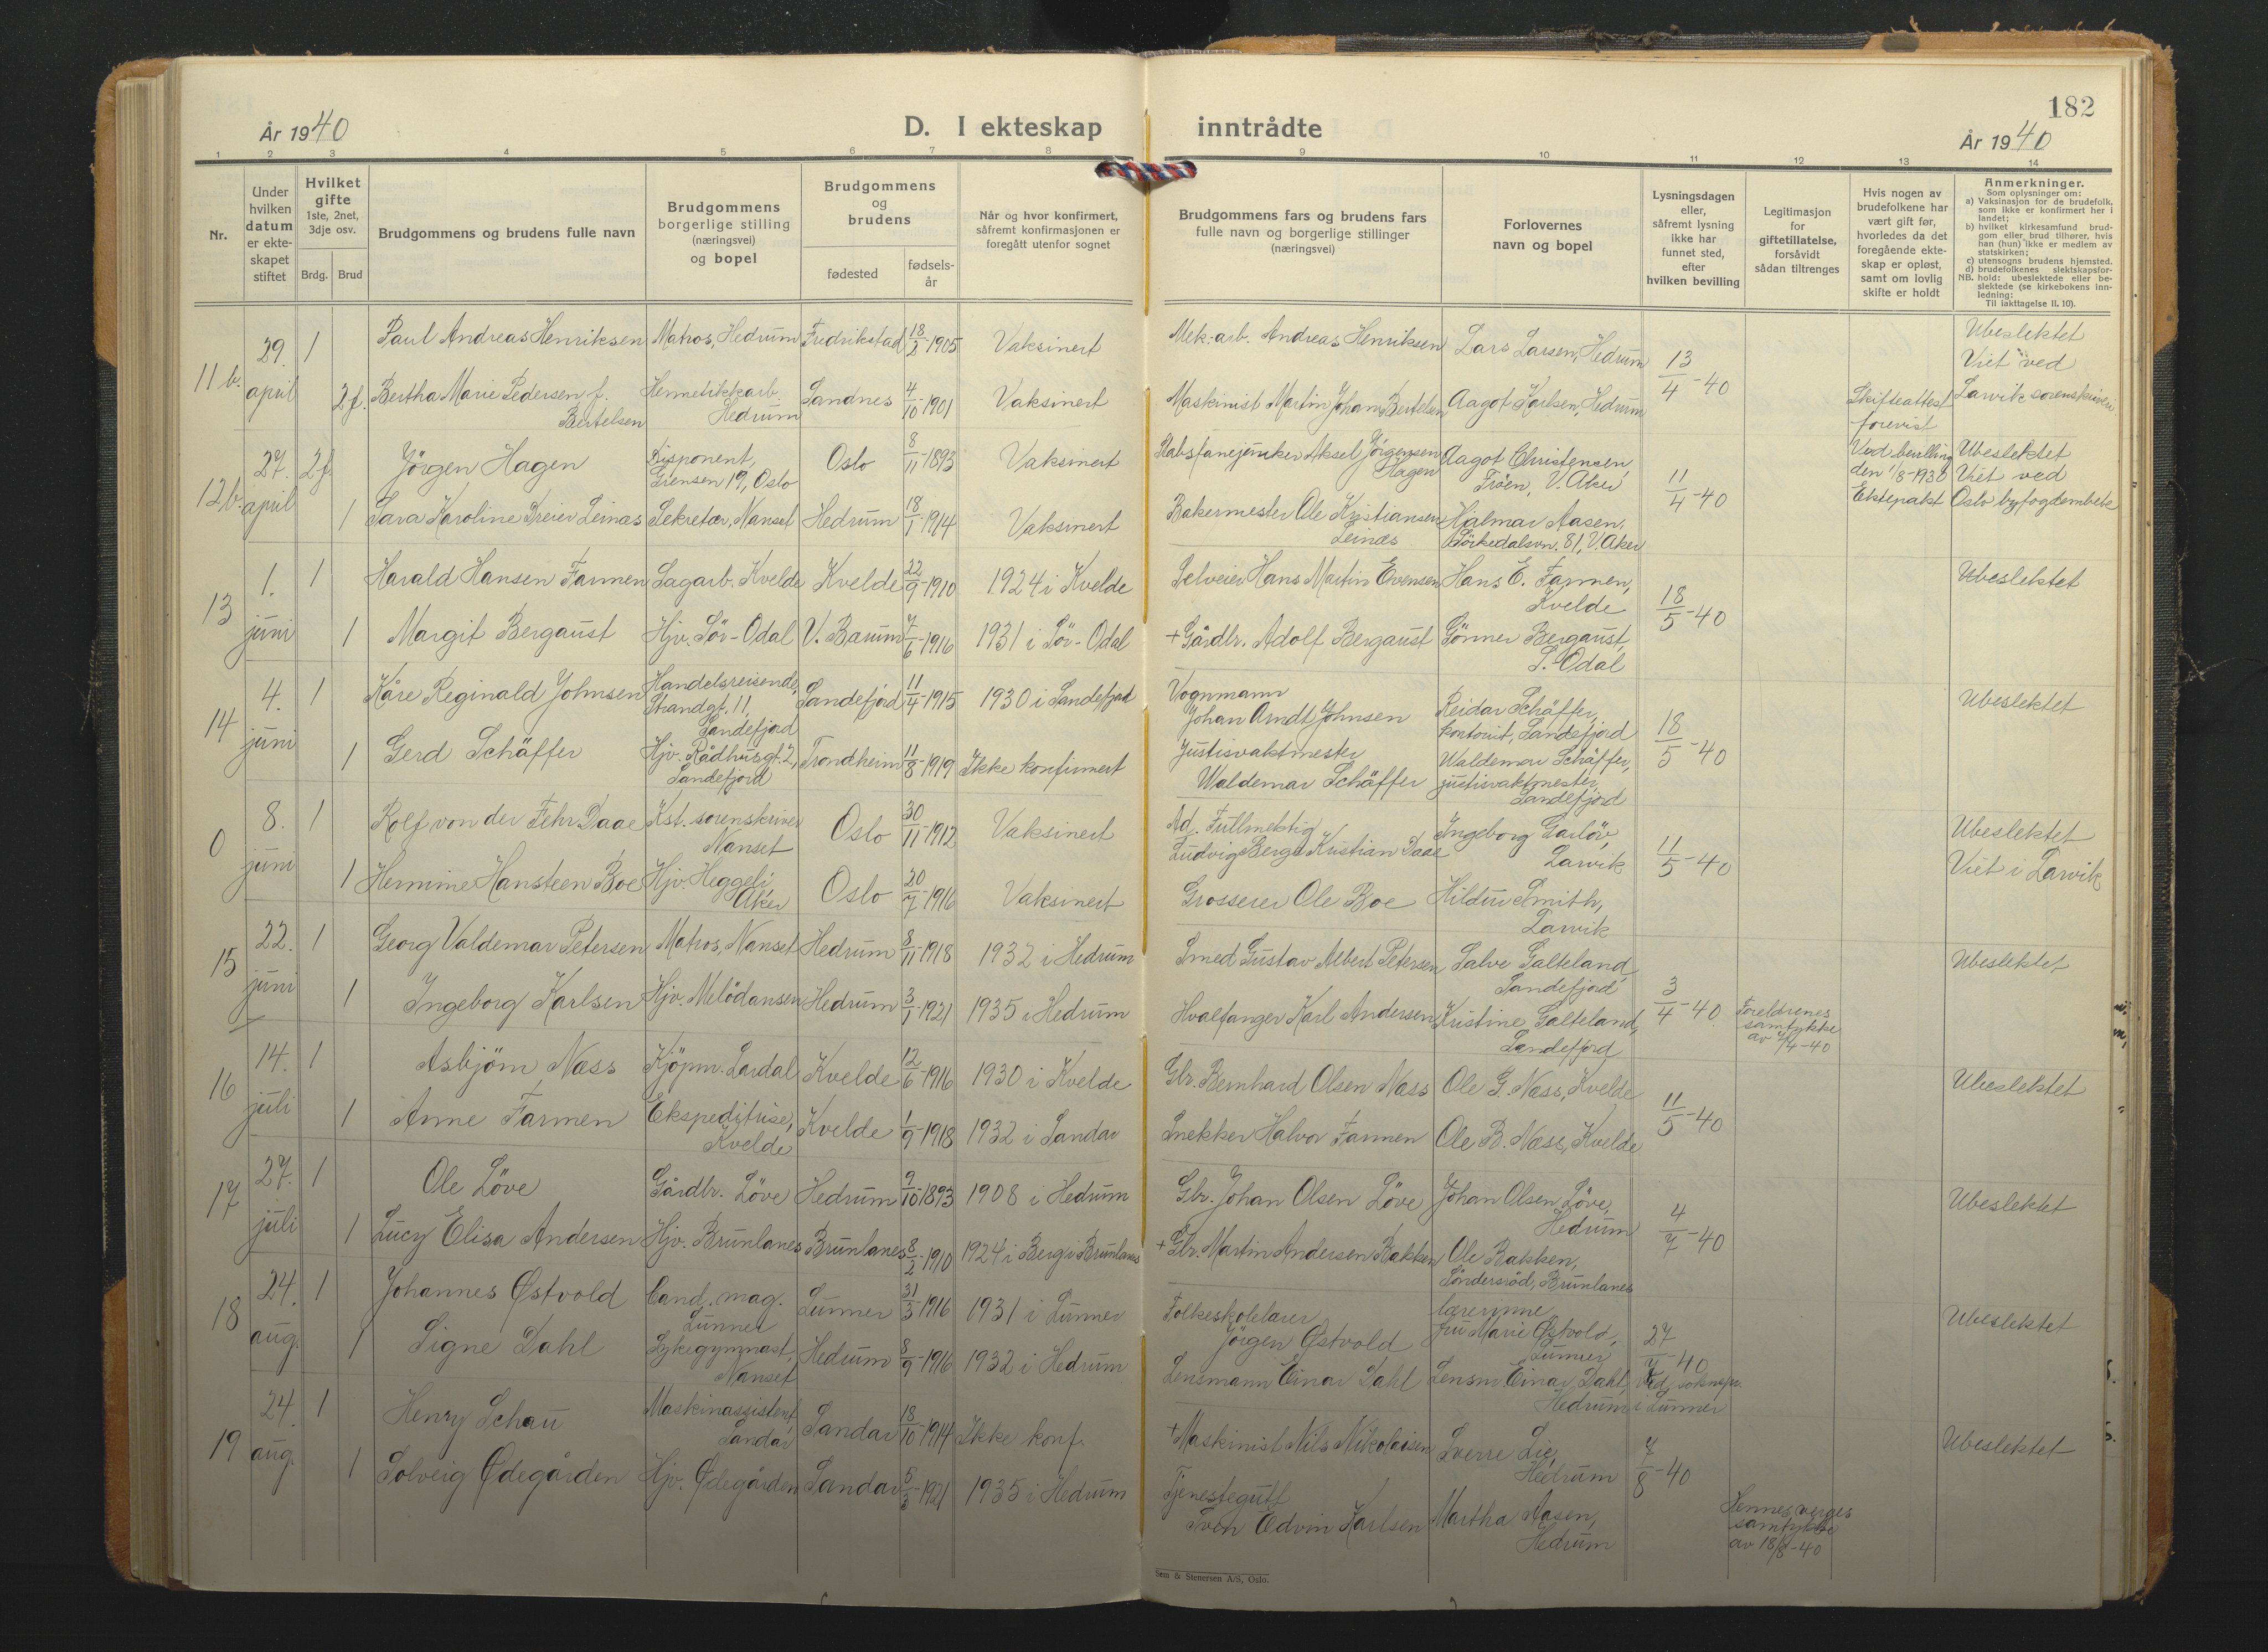 182
År 1940
D. I ekteskap inntrådte
År 1940
1 2 3 4 5 6 7 8 9 10 11 12 13 14
Nr.
Under
hvilken
datum
er ekte-
skapet
stiftet
Hvilket
gifte
1ste, 2net,
3dje osv.
Brdg. Brud
Brudgommens og brudens fulle navn
Brudgommens
borgerlige stilling
(næringsvei)
og bopel
Brudgommens
og
brudens
fødested
fødsels-
år
Når og hvor konfirmert,
såfremt konfirmasjonen er
foregått utenfor sognet
Brudgommens fars og brudens fars
fulle navn og borgerlige stillinger
(næringsvei)
Forlovernes
navn og bopel
Lysningsdagen
eller,
såfremt lysning
ikke har
funnet sted,
efter
hvilken bevilling
Legitimasjon
for
giftetillatelse,
forsåvidt
sådan tiltrenges
Hvis nogen av
brudefolkene har
vært gift før,
hvorledes da det
foregående ekte-
skap er opløst,
samt om lovlig
skifte er holdt
Anmerkninger.
Som oplysninger om:
a) Vaksinasjon for de brudefolk,
som ikke er konfirmert her i
landet;
b) hvilket kirkesamfund brud-
gom eller brud tilhører, hvis
han (hun) ikke er medlem av
statskirken;
c) utensogns brudens hjemsted.
d) brudefolkenes slektskapsfor-
NB. hold: ubeslektede eller be-
slektede (se kirkebokens inn-
ledning:
Til iakttagelse II. 10).
11 b. 29. april
1 Paul Andreas Henriksen Matros, Hedrum Fredrikstad 18/2-1905 Vaksinert Mek. arb. Andreas Henriksen Lars Larsen, Hedrum 13/4-40 Ubeslektet
Viet ved
Larvik sorenskriveri.
2 f. Bertha Marie Pedersen f.
Bertelsen Hermetikkarb.
Hedrum Sandnes 4/10-1901 Vaksinert Maskinist Martin Johan Bertelsen Aagot Karlsen, Hedrum Skifteattest
forevist
12 b. 27. april
2 f. Jörgen Hagen Disponent,
Grensen 19, Oslo Oslo 8/11-1893 Vaksinert Stabsfanejunker Aksel Jörgensen
Hagen Aagot Christensen,
Fröen, V. Aker 11/4-40 Ved bevilling
den 1/8-1930
Ektepakt Ubeslektet
Viet ved
Oslo byfogdembete
1 Sara Karoline Dreier Leinæs Sekretær, Nanset Hedrum 18/1-1914 Vaksinert Bakermester Ole Kristiansen
Leinæs Hjalmar Aasen,
Sörkedalsvn. 81, V. Aker
13 1. juni
1 Harald Hansen Farmen Sagarb. Kvelde Kvelde 22/9-1910 1924 i Kvelde Selveier Hans Martin Evensen Hans E. Farmen,
Kvelde 18/5-40 Ubeslektet
1 Margit Bergaust Hjv. Sör-Odal V. Bærum 7/6-1916 1931 i Sör-Odal + Gårdbr. Adolf Bergaust Gönner Bergaust,
S. Odal
14 4. juni
1 Kåre Reginald Johnsen Handelsreisende,
Strandgt. 11,
Sandefjord Sandefjord 11/4-1915 1930 i Sandefjord Vognmann
Johan Arndt Johnsen Reidar Schäffer,
kontorist, Sandefjord 18/5-40 Ubeslektet
1 Gerd Schäffer Hjv. Rådhusgt. 2,
Sandefjord Trondheim 11/8-1919 Ikke konfirmert Justisvaktmester
Waldemar Schäffer Waldemar Schäffer,
justisvaktmester,
Sandefjord
0 8. juni
1 Rolf von der Fehr Daae Kst. sorenskriver
Nanset Oslo 30/11-1912 Vaksinert Ad. Fullmektig
Ludvig Berge Kristian Daae Ingeborg Garlöv,
Larvik 11/5-40 Ubeslektet
Viet i Larvik
1 Hermine Hansteen Boe Hjv. Heggeli,
Aker Oslo 20/7-1916 Vaksinert Grosserer Ole Boe Hildur Smith,
Larvik
15 22. juni
1 Georg Valdemar Petersen Matros, Nanset Hedrum 8/11-1918 1932 i Hedrum Smed Gustav Albert Petersen Salve Galteland,
Sandefjord 3/4-40 Ubeslektet
1 Ingeborg Karlsen Hjv. Melödansen Hedrum 3/1-1921 1935 i Hedrum Hvalfanger Karl Andersen Kristine Galteland,
Sandefjord Foreldrenes
samtykke
av 2/4-40
16 14. juli
1 Asbjörn Næss Kjöpm. Lardal Kvelde 12/6-1916 1930 i Kvelde Gbr. Bernhard Olsen Næss Ole G. Næss, Kvelde 11/5-40 Ubeslektet
1 Anne Farmen Ekspeditrise,
Kvelde Kvelde 1/9-1918 1932 i Sandar Snekker Halvor Farmen Ole B. Næss, Kvelde
17 27. juli
1 Ole Löve Gårdbr. Löve Hedrum 9/10-1893 1908 i Hedrum Gbr. Johan Olsen Löve Johan Olsen Löve,
Hedrum 4/7-40 Ubeslektet
1 Lucy Elisa Andersen Hjv. Brunlanes Brunlanes 8/2-1910 1924 i Berg i Brunlanes + Gbr. Martin Andersen Bakken Ole Bakken,
Söndersröd, Brunlanes
18 24. aug.
1 Johannes Østvold Cand. mag.
Lunner Lunner 31/3-1916 1931 i Lunner Folkeskolelærer
Jörgen Østvold lærerinne
fru Marie Østvold,
Lunner 27/7-40
Ved soknepr.
i Lunner Ubeslektet
1 Signe Dahl Sykegymnast,
Nanset Hedrum 8/9-1916 1932 i Hedrum Lensmann Einar Dahl Lensm. Einar Dahl,
Hedrum
19 24. aug.
1 Henry Schau Maskinassistent,
Sandar Sandar 18/10-1914 Ikke konf. + Maskinist Nils Nikolaisen Sverre Lie,
Hedrum 7/8-40 Ubeslektet
1 Solveig Ødegården Hjv. Ødegården Sandar 5/3-1921 1935 i Hedrum Tjenestegutt
Sven Edvin Karlsen Martha Aasen,
Hedrum Hennes verges
samtykke
av 18/8-40
Sem & Stenersen A/S, Oslo.